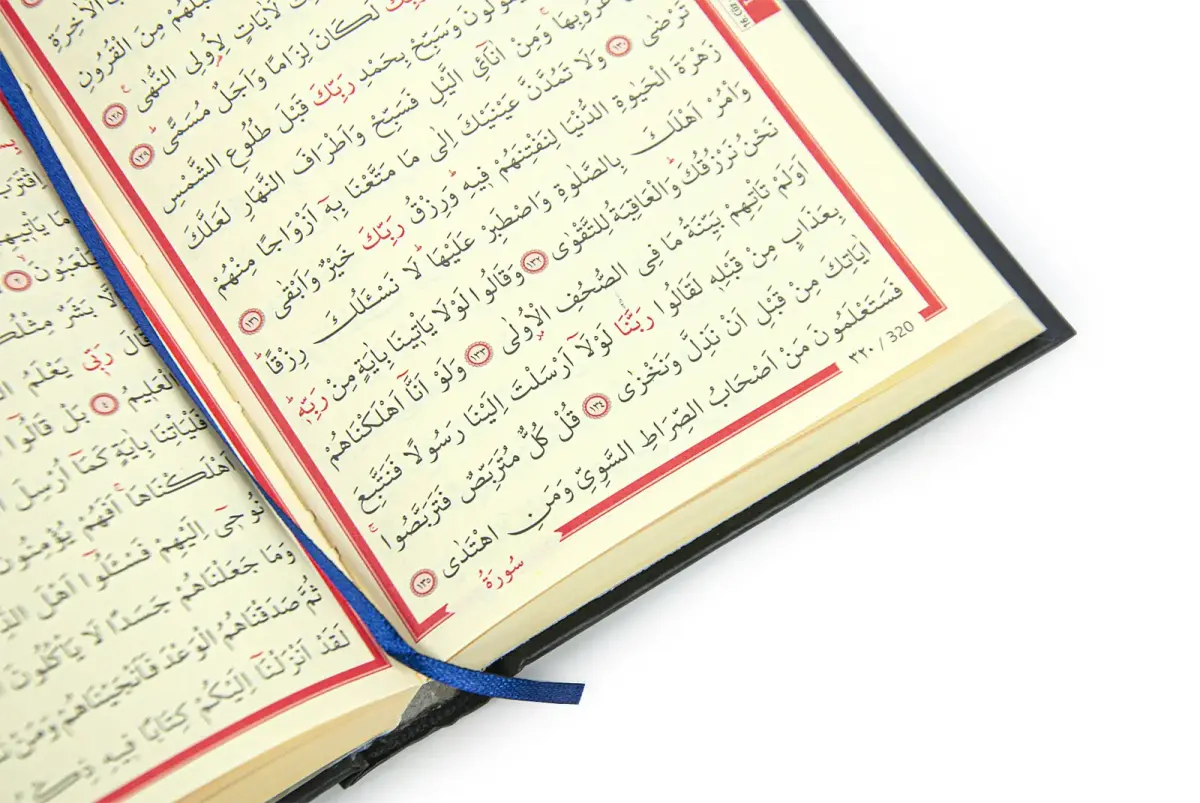 الْاٰخِرَةِ
قَبْلَهُمْ مِنَ الْقُرُونِ
لَاٰيَاتٍ لِاُو۬لِي النُّهٰى ١٢٨
رَبِّكَ لَكَانَ لِزَامًا وَاَجَلٌ مُسَمًّى ١٢٩
يَقُولُونَ وَسَبِّحْ بِحَمْدِ رَبِّكَ قَبْلَ طُلُوعِ الشَّمْسِ
غُرُوبِهَا وَمِنْ اٰنَٓائِ الَّيْلِ فَسَبِّحْ وَاَطْرَافَ النَّهَارِ لَعَلَّكَ
تَرْضٰى ١٣٠ وَلَا تَمُدَّنَّ عَيْنَيْكَ اِلٰى مَا مَتَّعْنَا بِه۪ٓ اَزْوَاجًا مِنْهُمْ
زَهْرَةَ الْحَيٰوةِ الدُّنْيَا لِنَفْتِنَهُمْ ف۪يهِۜ وَرِزْقُ رَبِّكَ خَيْرٌ وَاَبْقٰى ١٣١
وَأْمُرْ اَهْلَكَ بِالصَّلٰوةِ وَاصْطَبِرْ عَلَيْهَاۜ لَا نَسْـَٔلُكَ رِزْقًاۜ
نَحْنُ نَرْزُقُكَۜ وَالْعَاقِبَةُ لِلتَّقْوٰى ١٣٢ وَقَالُوا لَوْلَا يَأْت۪ينَا بِاٰيَةٍ مِنْ رَبِّه۪ۜ
اَوَلَمْ تَأْتِهِمْ بَيِّنَةُ مَا فِي الصُّحُفِ الْاُو۫لٰى ١٣٣ وَلَوْ اَنَّٓا اَهْلَكْنَاهُمْ
بِعَذَابٍ مِنْ قَبْلِه۪ لَقَالُوا رَبَّنَا لَوْلَٓا اَرْسَلْتَ اِلَيْنَا رَسُولًا فَنَتَّبِعَ
اٰيَاتِكَ مِنْ قَبْلِ اَنْ نَذِلَّ وَنَخْزٰى ١٣٤ قُلْ كُلٌّ مُتَرَبِّصٌ فَتَرَبَّصُواۚ
فَسَتَعْلَمُونَ مَنْ اَصْحَابُ الصِّرَاطِ السَّوِيِّ وَمَنِ اهْتَدٰى ١٣٥
سُورَةُ
٣٢٠ / 320
16 Cüz
اِقْتَرَبَ
مَا يَأْت۪يهِمْ
يَلْعَبُونَ ٢
بَشَرٌ مِثْلُكُمْ
قَالَ رَبّ۪ي يَعْلَمُ
الْعَل۪يمُ ٤ بَلْ قَالُٓوا
فَلْيَأْتِنَا بِاٰيَةٍ كَمَٓا اُرْسِلَ
اَهْلَكْنَاهَاۚ اَفَهُمْ يُؤْمِنُونَ
نُوح۪ٓي اِلَيْهِمْ فَسْـَٔلُٓوا اَهْلَ
وَمَا جَعَلْنَاهُمْ جَسَدًا لَا يَأْكُلُونَ
ثُمَّ صَدَقْنَاهُمُ الْوَعْدَ فَاَنْجَيْنَاهُمْ وَمَنْ
لَقَدْ اَنْزَلْنَٓا اِلَيْكُمْ كِتَابًا ف۪يهِ